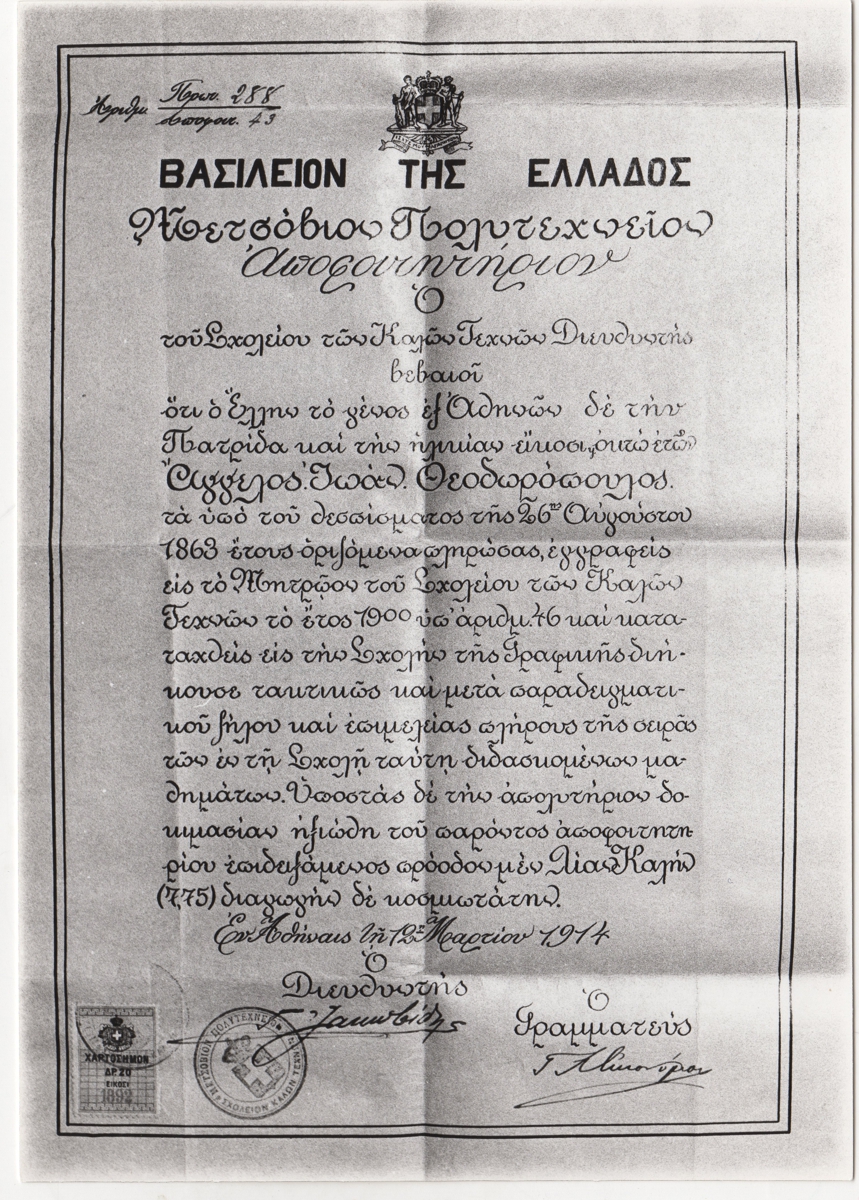 Ἀριθμ. Πρωτ. 288
Ἀποφοιτ. 43
ΒΑΣΙΛΕΙΟΝ ΤΗΣ ΕΛΛΑΔΟΣ
Μετσόβιον Πολυτεχνεῖον
Ἀποφοιτητήριον
Ὁ
τοῦ Σχολείου τῶν Καλῶν Τεχνῶν Διευθυντής
βεβαιοῖ
ὅτι ὁ Ἕλλην τὸ γένος ἐξ Ἀθηνῶν δὲ τὴν
Πατρίδα καὶ τὴν ἡλικίαν εἴκοσι, ὀκτὼ ἐτῶν
Ἄγγελος Ἰωάν. Θεοδωρόπουλος.
τὰ ὑπὸ τοῦ θεσπίσματος τῆς 26ης Αὐγούστου
1863 ἔτους ὁριζόμενα πληρώσας, ἐγγραφεὶς
εἰς τὸ Μητρῷον τοῦ Σχολείου τῶν Καλῶν
Τεχνῶν τὸ ἔτος 1900 ὑπ' ἀριθμ. 46 καὶ κατα-
ταχθεὶς εἰς τὴν Σχολὴν τῆς Γραφικῆς διή-
κουσε τακτικῶς καὶ μετὰ παραδειγματι-
κοῦ ζήλου καὶ ἐπιμελείας πλήρους τῆς σειρᾶς
τῶν ἐν τῇ Σχολῇ ταύτῃ διδασκομένων μα-
θημάτων. Ὑποστὰς δὲ τὴν ἀπολυτήριον δο-
κιμασίαν ἠξιώθη τοῦ παρόντος ἀποφοιτητη-
ρίου ἐπιδειξάμενος πρόοδον μὲν Λίαν Καλήν
(7,75) διαγωγὴν δὲ κοσμιωτάτην.
Ἐν Ἀθήναις τῇ 12ῃ Μαρτίου 1914
Ὁ
Διευθυντής
Γ. Ἰακωβίδης
Ὁ
Γραμματεύς
ΧΑΡΤΟΣΗΜΟΝ
ΔΡ. 20
ΕΙΚΟΣΙ
1892
ΜΕΤΣΟΒΙΟΝ ΠΟΛΥΤΕΧΝΕΙΟΝ
ΣΧΟΛΕΙΟΝ ΚΑΛΩΝ ΤΕΧΝΩΝ